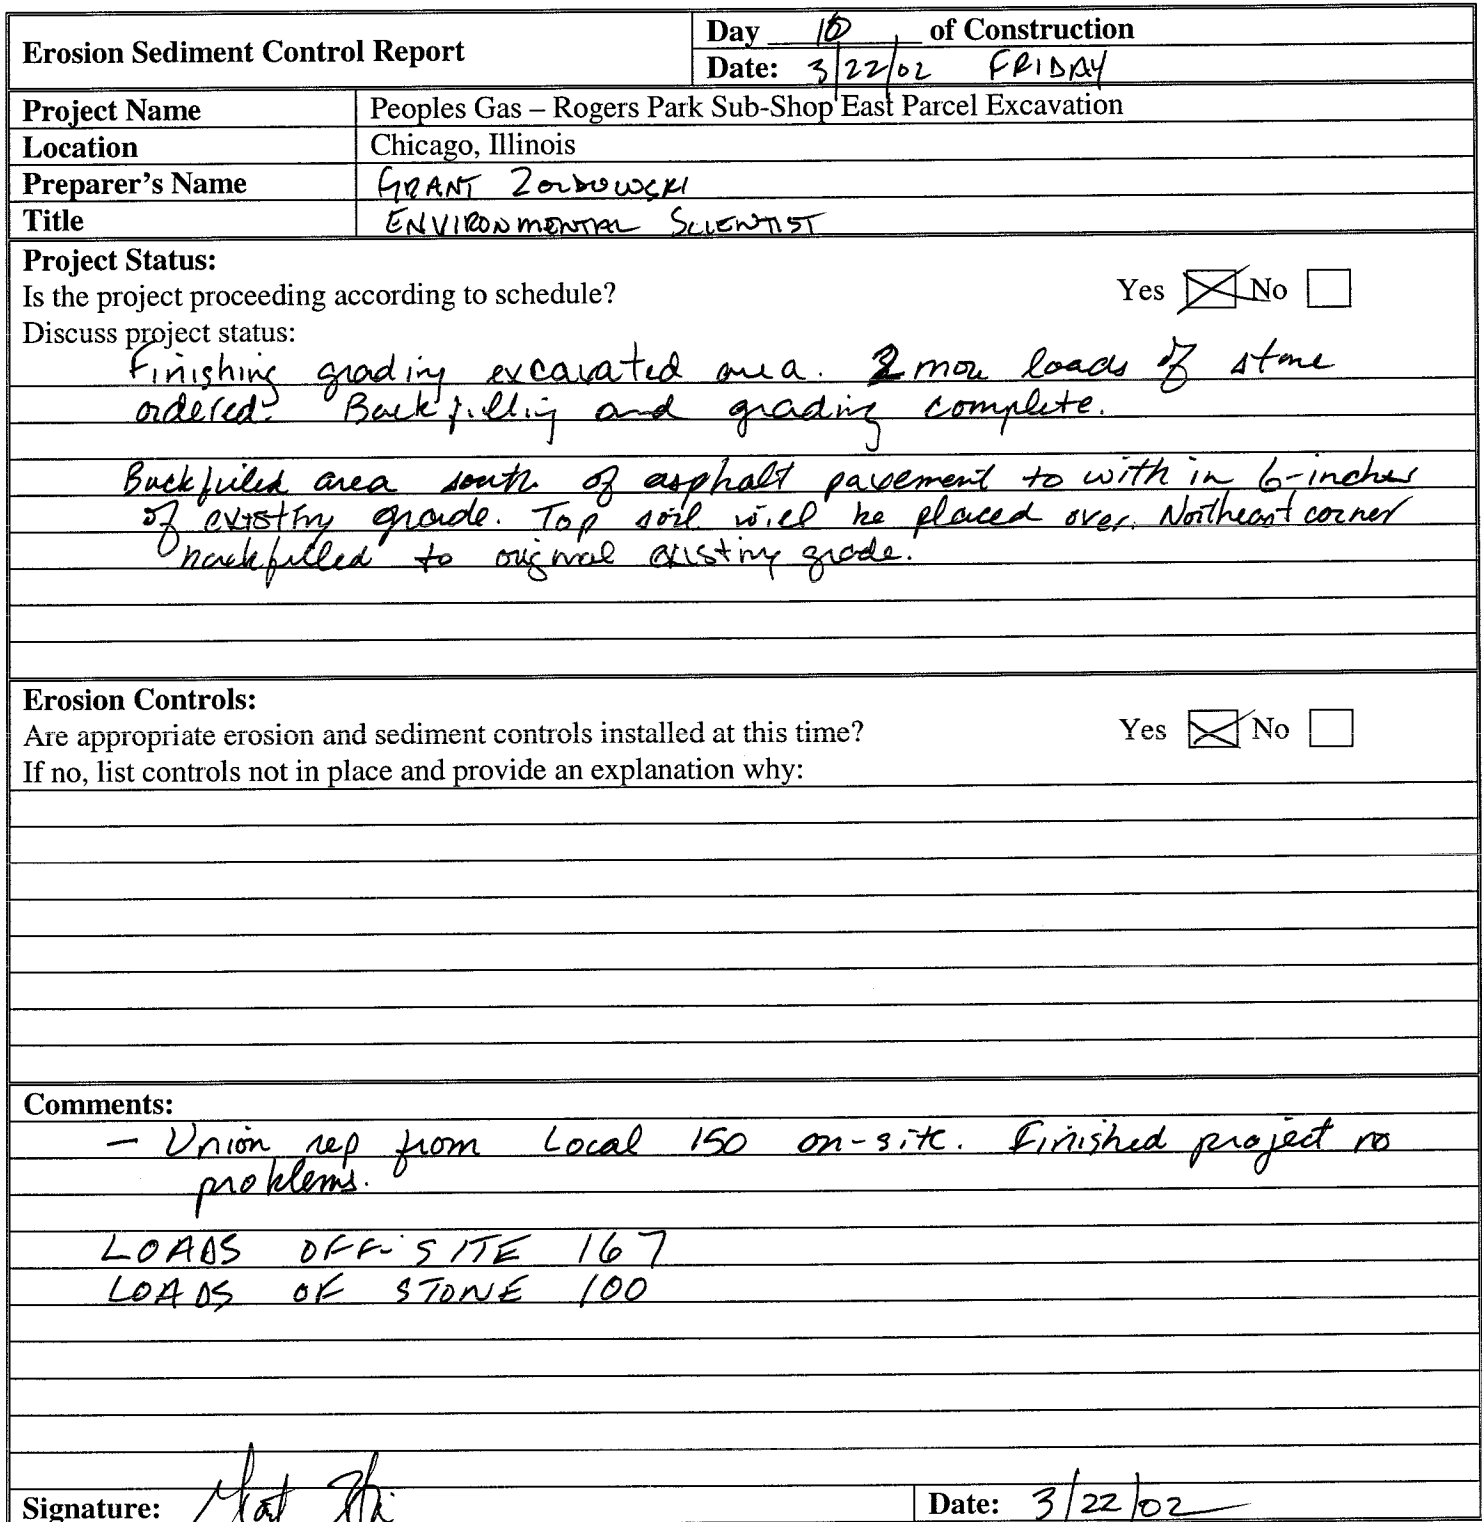 Erosion Sediment Control Report
Day 10 of Construction
Date: 3/22/02 FRIDAY
Project Name Peoples Gas – Rogers Park Sub-Shop East Parcel Excavation
Location Chicago, Illinois
Preparer's Name GRANT
Title ENVIRONMENTAL SCIENTIST
Project Status:
Is the project proceeding according to schedule? Yes No
Discuss project status:
Finishing grading excavated area. 2 more loads of stone
ordered. Backfilling and grading complete.
Backfilled area south of asphalt pavement to with in 6-inches
of existing grade. Top soil will be placed over. Northeast corner
backfilled to original existing grade.
Erosion Controls:
Are appropriate erosion and sediment controls installed at this time? Yes No
If no, list controls not in place and provide an explanation why:
Comments:
– Union rep from Local 150 on-site. Finished project no
problems.
LOADS OFF-SITE 167
LOADS OF STONE 100
Signature: Date: 3/22/02